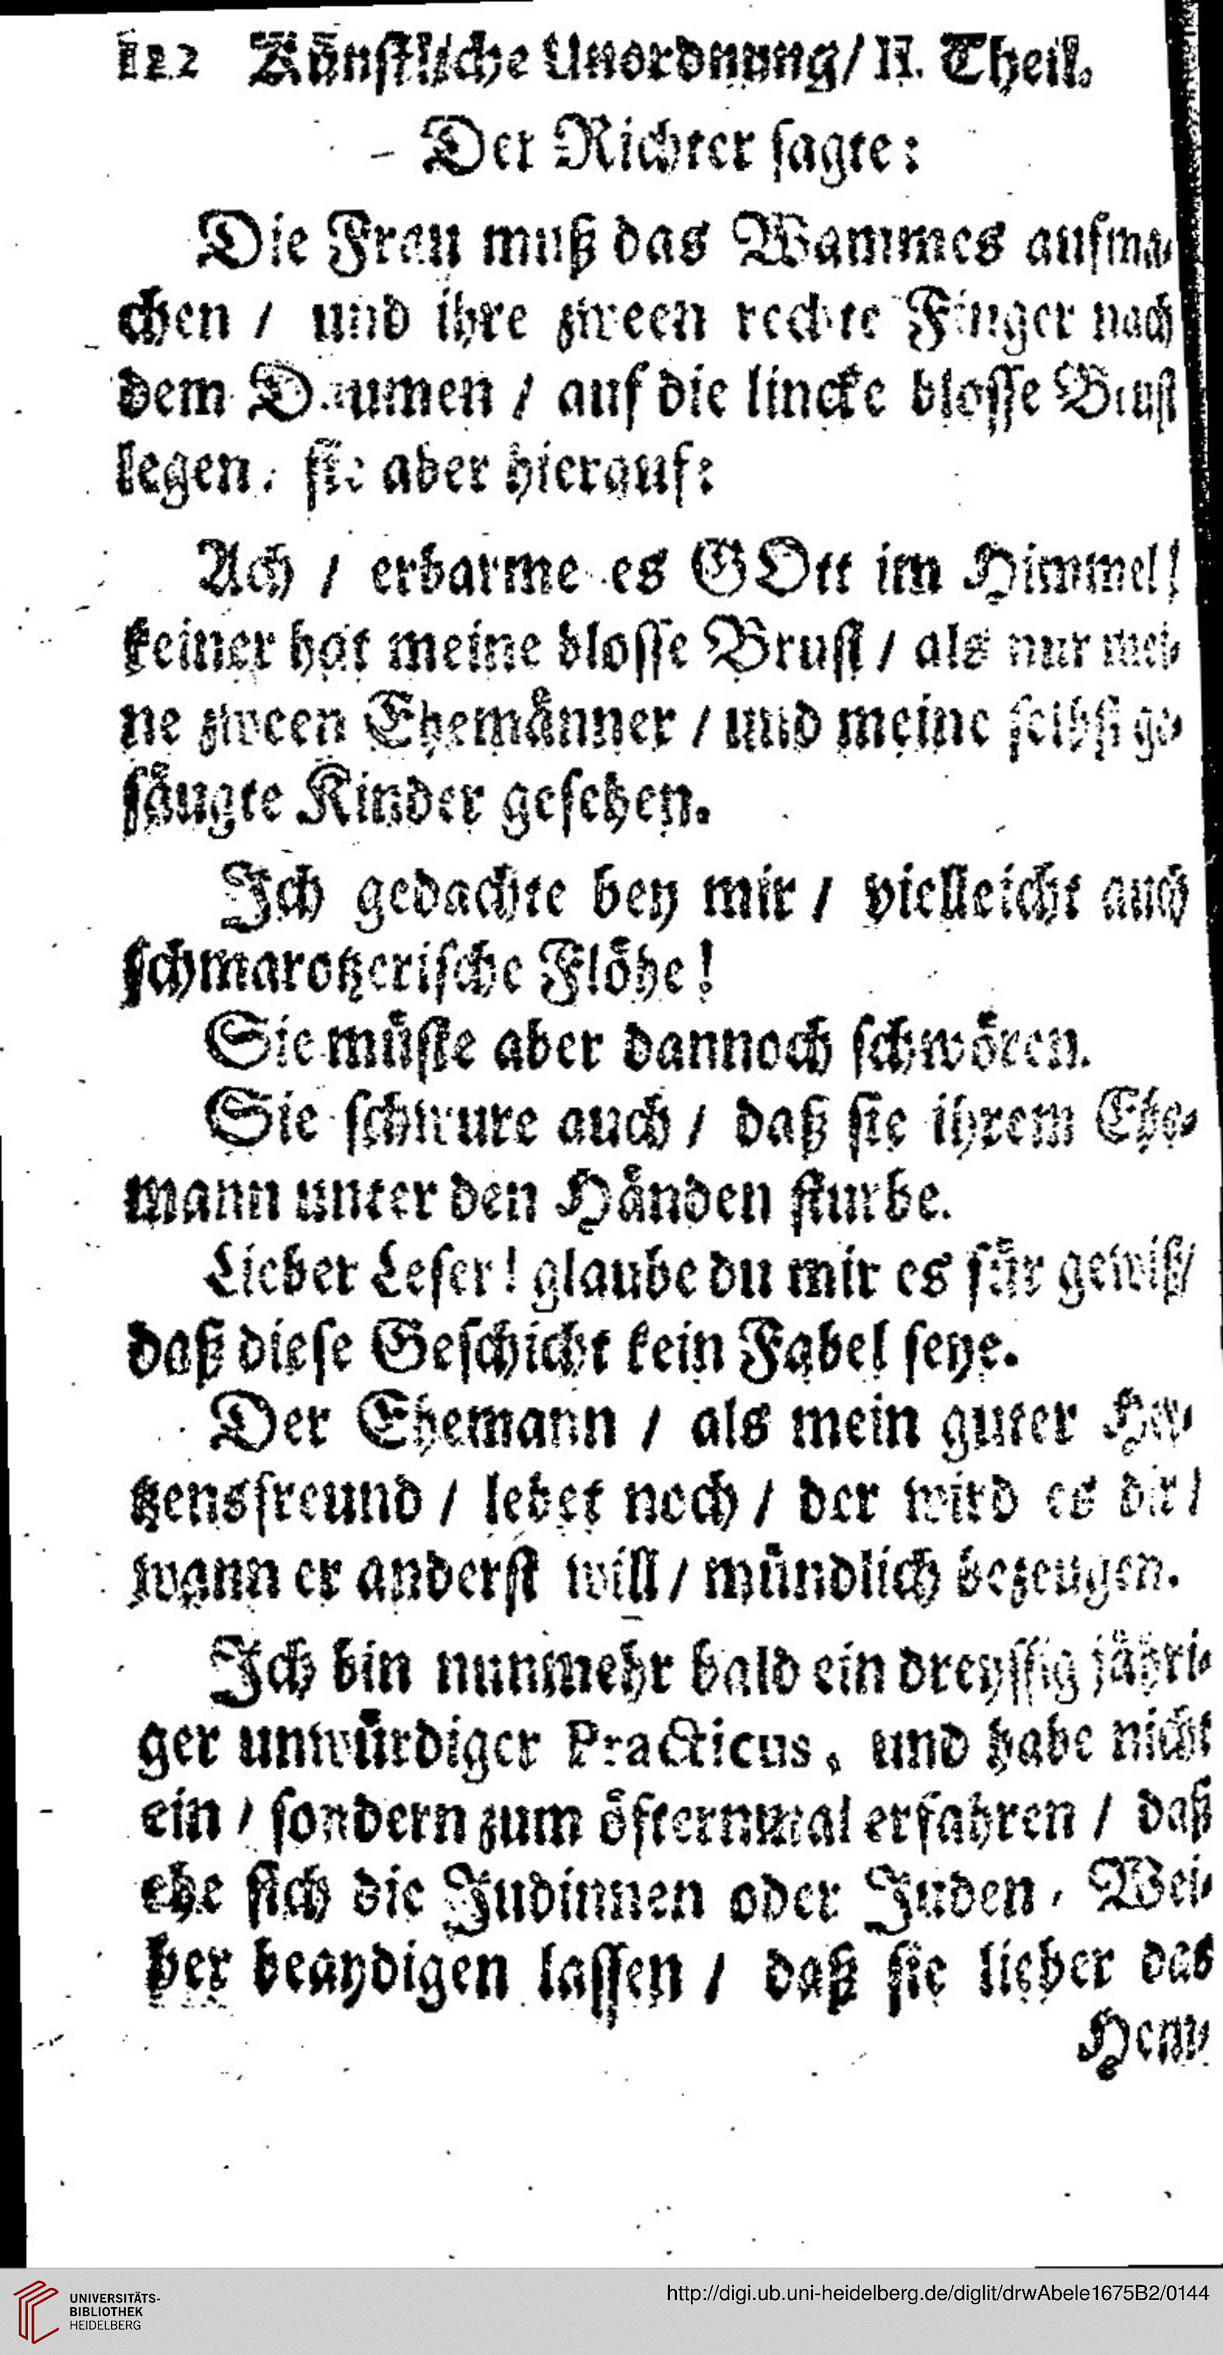 112 Künstliche Unordnung/ II. Theil.
Der Richter sagte:
Die Frau muß das Wammes aufma-
chen / und ihre zween rechte Finger nach
dem Daumen / auf die lincke blosse Brust
legen: sie aber hierauf:
Ach / erbarme es GOtt im Himmel /
keiner hat meine blosse Brust / als nur mei-
ne zween Ehemånner / und meine selbst ge-
såugte Kinder gesehen.
Ich gedachte bey mir / vielleicht auch
schmarotzerische Flöhe!
Sie můste aber dannoch schwören.
Sie schwure auch / daß sie ihrem Ehe-
mann unter den Hånden sturbe.
Lieber Leser! glaube du mir es für gewiß/
daß diese Geschicht kein Fabel seye.
Der Ehemann / als mein guter Her-
tzensfreund / lebet noch / der wird es dir /
wann er anderst will / mündlich bezeugen.
Ich bin nunmehr bald ein dreyssig jåhri-
ger unwürdiger Practicus, und habe nicht
ein / sondern zum öfternmal erfahren / daß
ehe sich die Judinnen oder Juden-Wei-
ber beaydigen lassen / daß sie lieber das
Hem-
UNIVERSITÄTS-
BIBLIOTHEK
HEIDELBERG
http://digi.ub.uni-heidelberg.de/diglit/drwAbele1675B2/0144